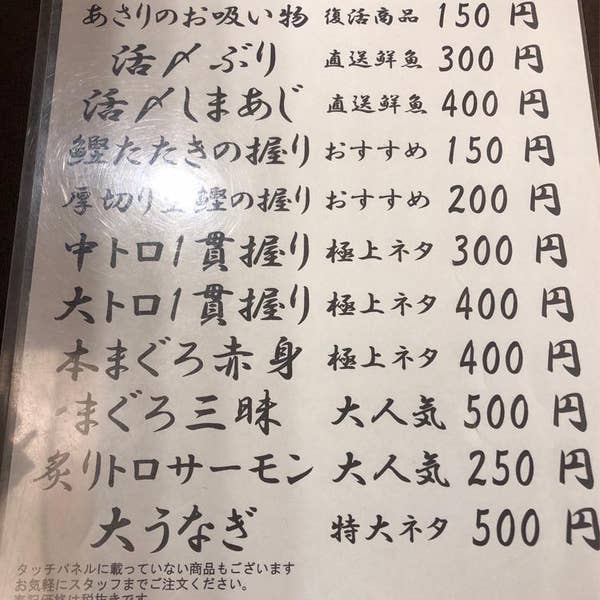 あさりのお吸い物 復活商品 150 円
活〆ぶり 直送鮮魚 300 円
活〆しまあじ 直送鮮魚 400 円
鰹たたきの握り おすすめ 150 円
厚切り生鰹の握り おすすめ 200 円
中トロ1貫握り 極上ネタ 300 円
大トロ1貫握り 極上ネタ 400 円
本まぐろ赤身 極上ネタ 400 円
まぐろ三昧 大人気 500 円
炙りトロサーモン 大人気 250 円
大うなぎ 特大ネタ 500 円
タッチパネルに載っていない商品もございます
お気軽にスタッフまでご注文ください。
表記価格は税抜きです